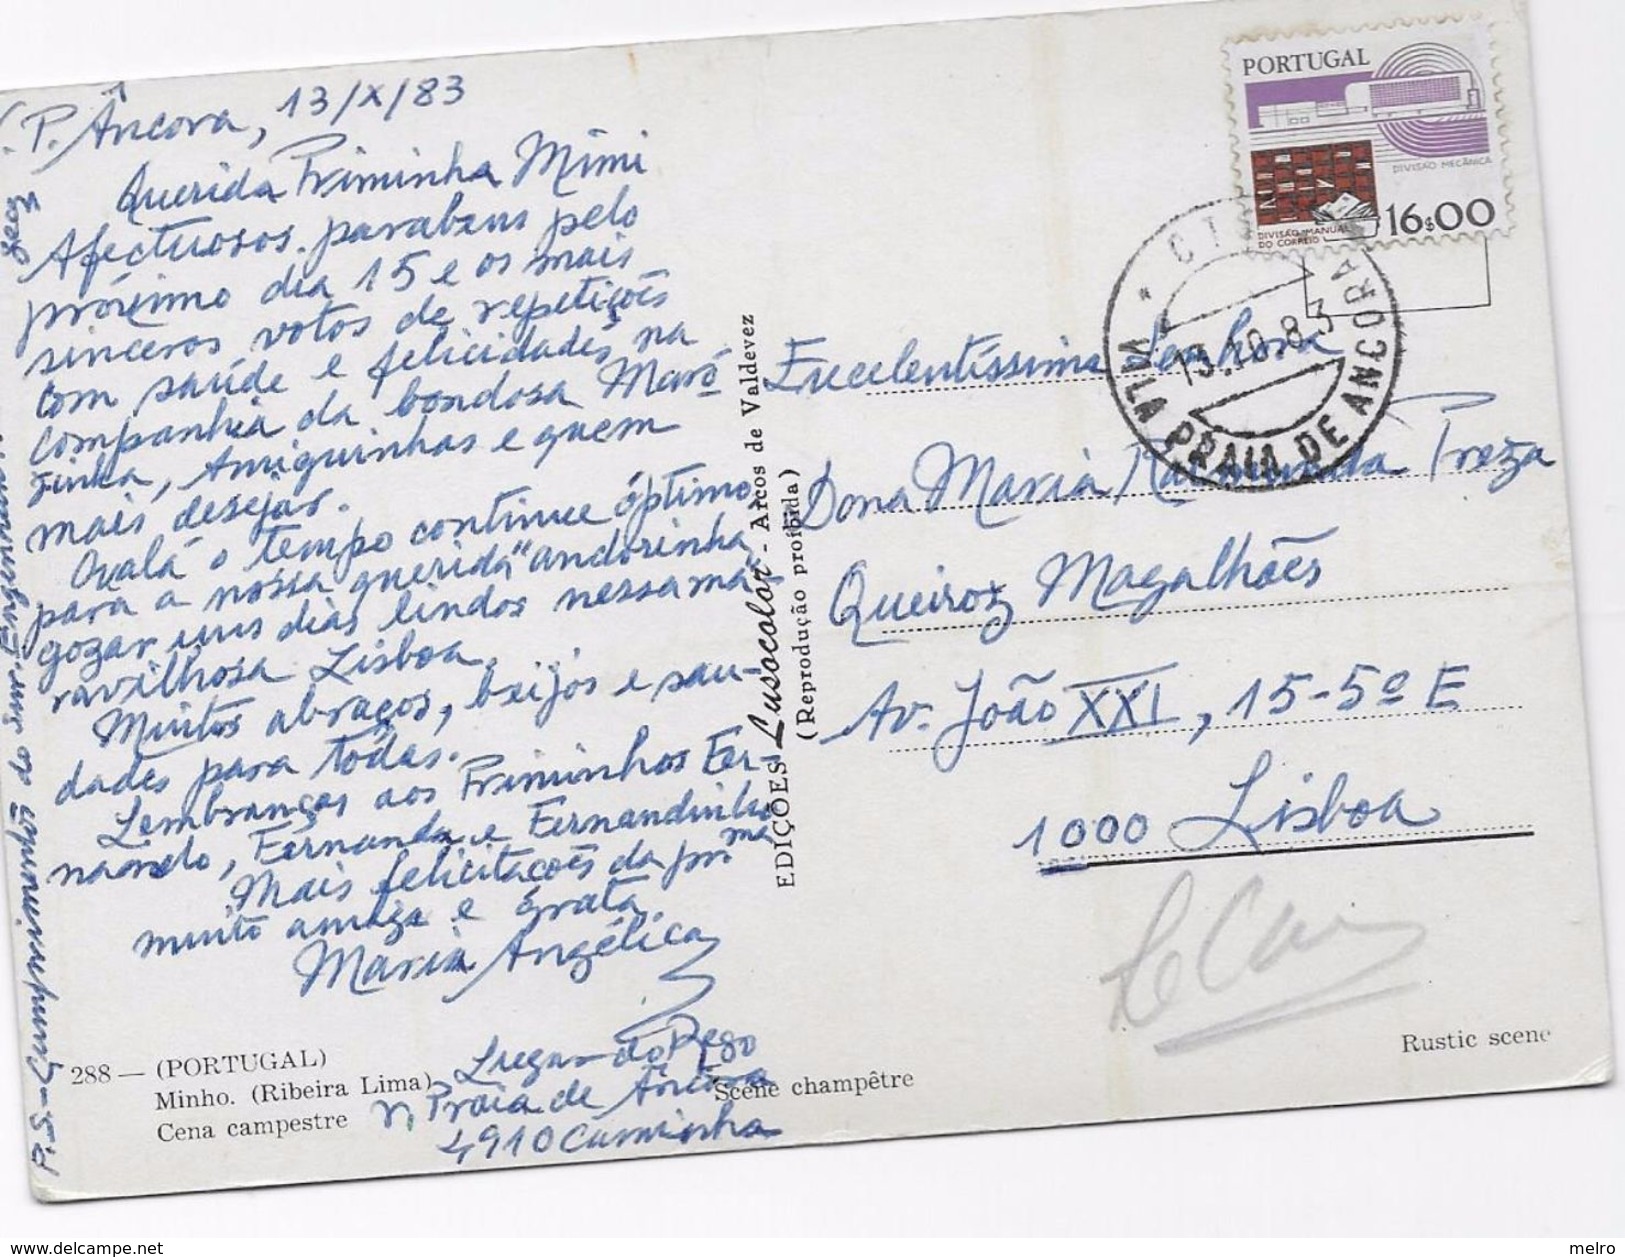 V. P. Âncora, 13/X/83
Querida Priminha Mimi
Afectuosos parabens pelo
próximo dia 15 e os mais
sinceros votos de repetições
com saúde e felicidades na
companhia da bondosa Maró
zinha, Amiguinhas e quem
mais desejar.
Oxalá o tempo continue óptimo
para a nossa querida "andorinha
gozar uns dias lindos nessa ma-
ravilhosa Lisboa.
Muitos abraços, beijos e sau-
dades para todas.
Lembranças aos Priminhos Fer-
nando, Fernanda e Fernandinho
Mais felicitações da prima
muito amiga e grata
Maria Angélica
Lugar do Rego
V. Praia de Âncora
4910 Caminha
P.S - Cumprimentos ao snr. Eng
288 — (PORTUGAL)
Minho. (Ribeira Lima)
Cena campestre
Scène champêtre
Rustic scene
EDIÇÕES Lusocolor - Arcos de Valdevez
(Reprodução proibida)
PORTUGAL
DIVISÃO MECÂNICA
DIVISÃO MANUAL
DO CORREIO
16$00
CT
VILA PRAIA DE ANCORA
13.10.83
Excelentíssima Senhora
Dona Maria Raimunda Preza
Queiroz Magalhães
Av. João XXI, 15-5º E
1000 Lisboa
melro
www.delcampe.net